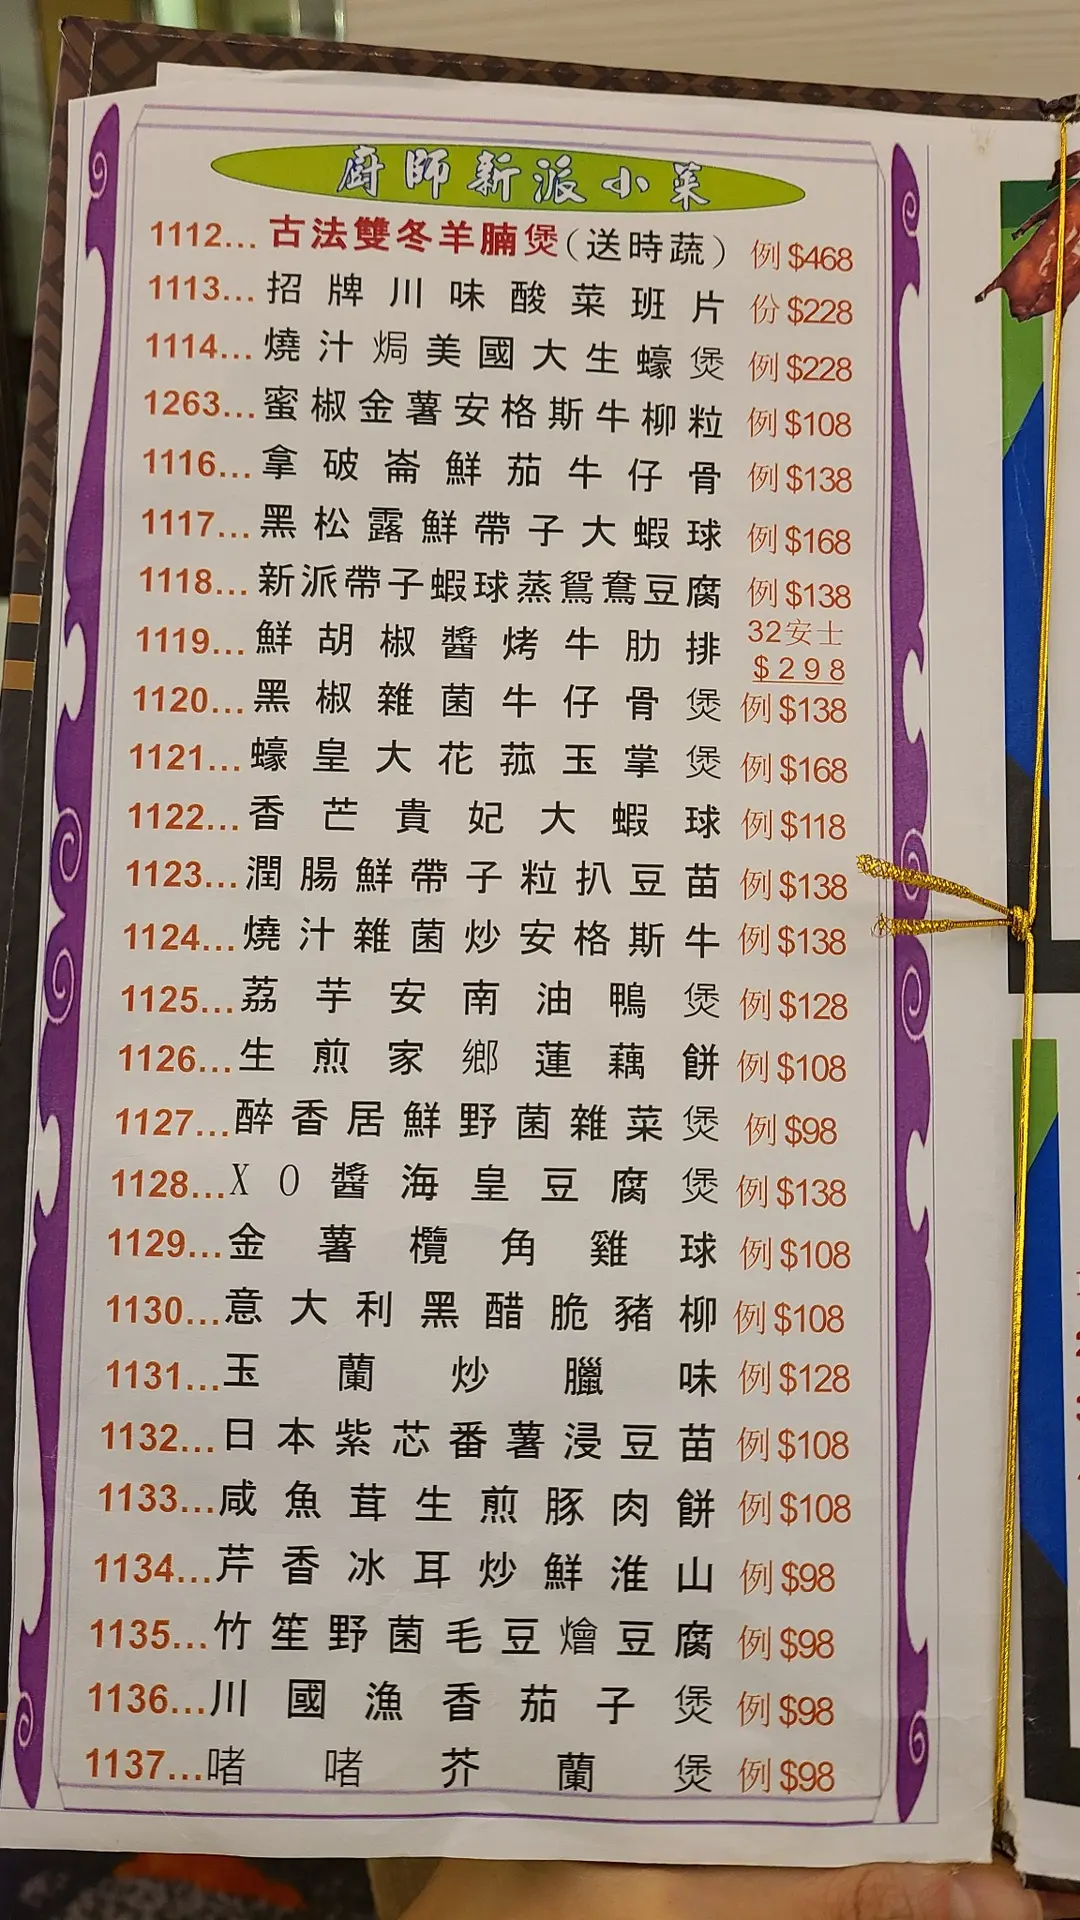 廚師新派小菜
1112... 古法雙冬羊腩煲(送時蔬) 例 $468
1113... 招牌川味酸菜班片 份 $228
1114... 燒汁焗美國大生蠔煲 例 $228
1263... 蜜椒金薯安格斯牛柳粒 例 $108
1116... 拿破崙鮮茄牛仔骨 例 $138
1117... 黑松露鮮帶子大蝦球 例 $168
1118... 新派帶子蝦球蒸鴛鴦豆腐 例 $138
1119... 鮮胡椒醬烤牛肋排 32安士 $298
1120... 黑椒雜菌牛仔骨煲 例 $138
1121... 蠔皇大花菰玉掌煲 例 $168
1122... 香芒貴妃大蝦球 例 $118
1123... 潤腸鮮帶子粒扒豆苗 例 $138
1124... 燒汁雜菌炒安格斯牛 例 $138
1125... 荔芋安南油鴨煲 例 $128
1126... 生煎家鄉蓮藕餅 例 $108
1127... 醉香居鮮野菌雜菜煲 例 $98
1128... XO醬海皇豆腐煲 例 $138
1129... 金薯欖角雞球 例 $108
1130... 意大利黑醋脆豬柳 例 $108
1131... 玉蘭炒臘味 例 $128
1132... 日本紫芯番薯浸豆苗 例 $108
1133... 咸魚茸生煎豚肉餅 例 $108
1134... 芹香冰耳炒鮮淮山 例 $98
1135... 竹笙野菌毛豆燴豆腐 例 $98
1136... 川國漁香茄子煲 例 $98
1137... 啫啫芥蘭煲 例 $98